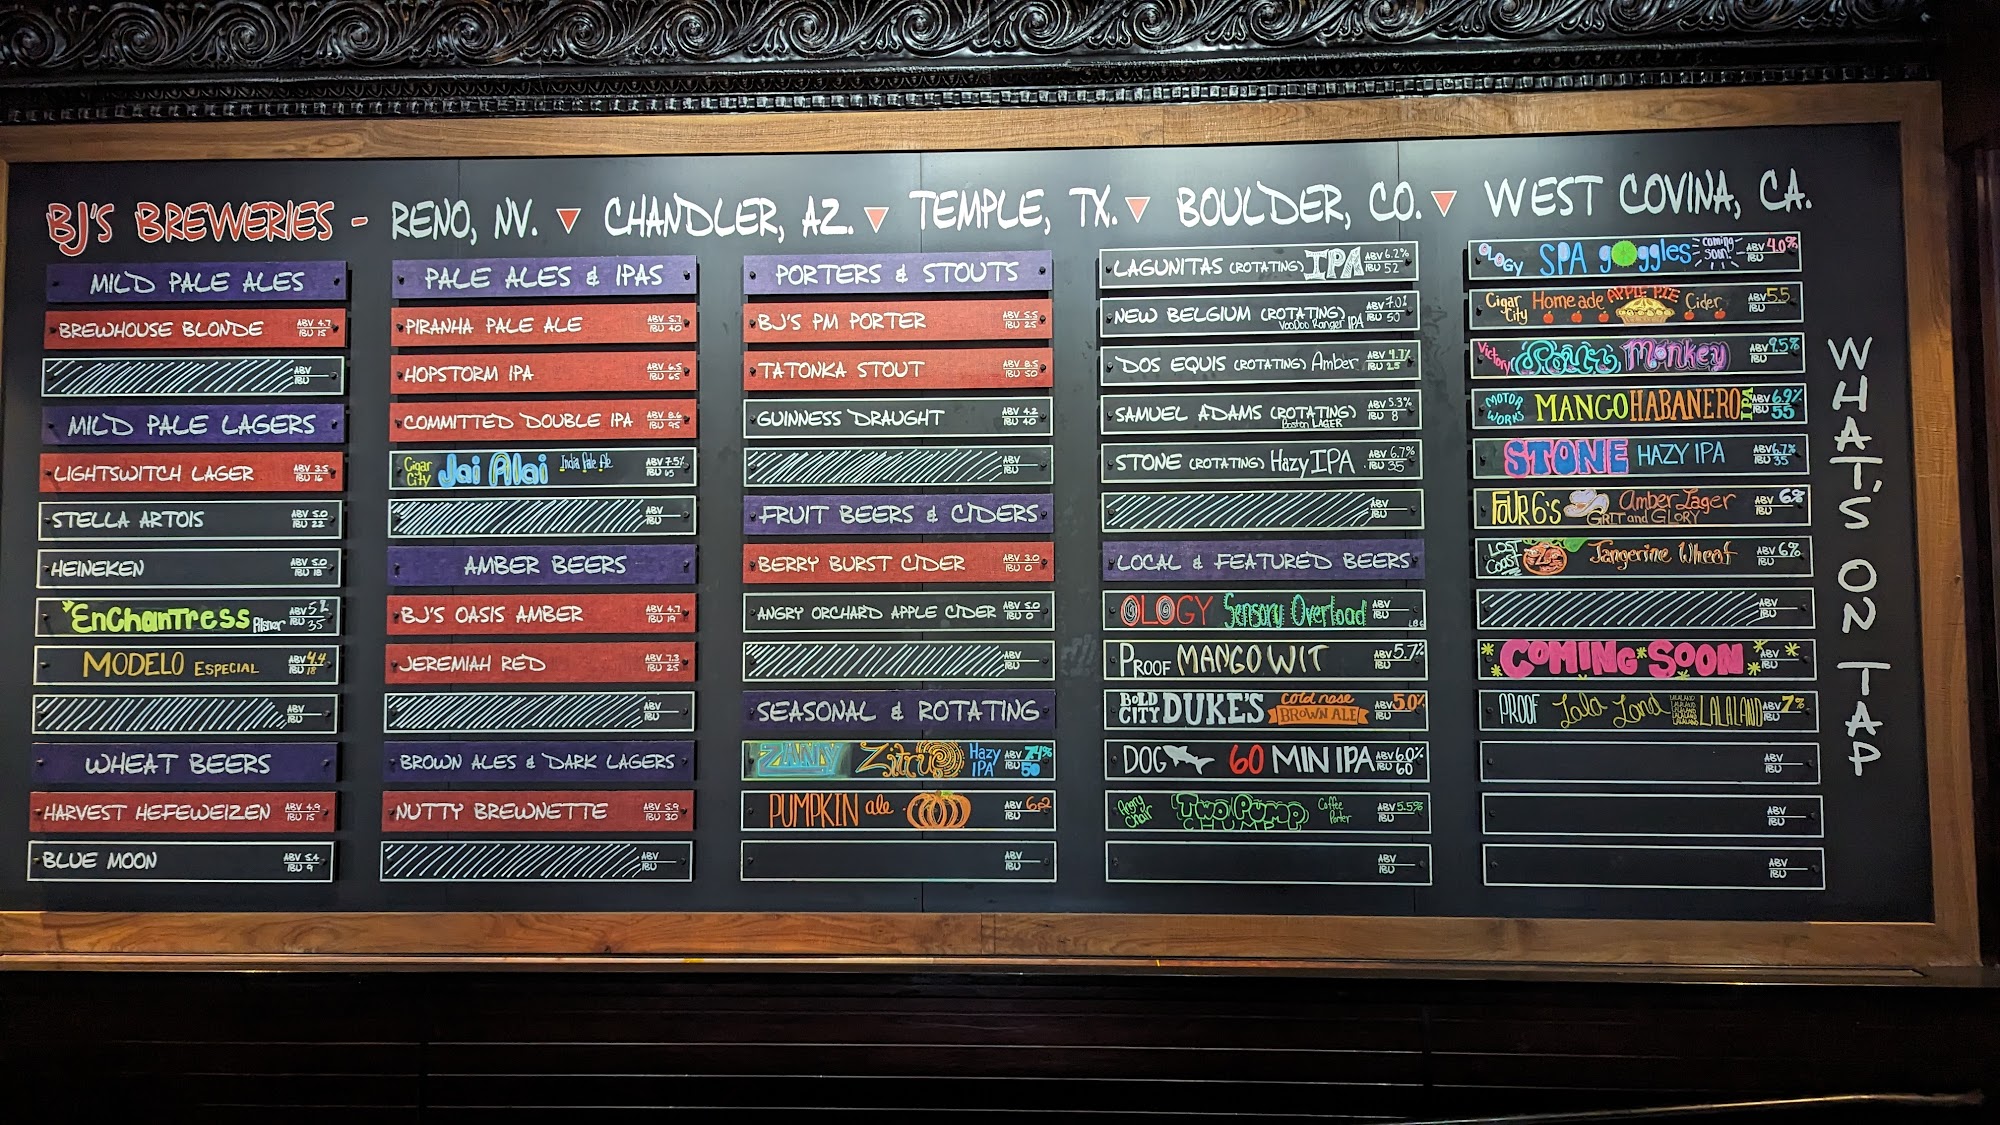 BJ'S BREWERIES - RENO, NV. CHANDLER, AZ. TEMPLE, TX. BOULDER, CO. WEST COVINA, CA.
MILD PALE ALES
BREWHOUSE BLONDE ABV 4.7 IBU 15
ABV IBU
MILD PALE LAGERS
LIGHTSWITCH LAGER ABV 3.5 IBU 16
STELLA ARTOIS ABV 5.0 IBU 22
HEINEKEN ABV 5.0 IBU 18
EnChanTress Pilsner ABV 5% IBU 35
MODELO ESPECIAL ABV 4.4 IBU 18
ABV IBU
WHEAT BEERS
HARVEST HEFEWEIZEN ABV 4.9 IBU 15
BLUE MOON ABV 5.4 IBU 9
PALE ALES & IPAS
PIRANHA PALE ALE ABV 5.7 IBU 40
HOPSTORM IPA ABV 6.5 IBU 65
COMMITTED DOUBLE IPA ABV 8.6 IBU 95
Cigar City Jai Alai India Pale Ale ABV 7.5% IBU 65
ABV IBU
AMBER BEERS
BJ'S OASIS AMBER ABV 4.7 IBU 19
JEREMIAH RED ABV 7.3 IBU 25
ABV IBU
BROWN ALES & DARK LAGERS
NUTTY BREWNETTE ABV 5.9 IBU 30
ABV IBU
PORTERS & STOUTS
BJ'S PM PORTER ABV 5.5 IBU 25
TATONKA STOUT ABV 8.5 IBU 50
GUINNESS DRAUGHT ABV 4.2 IBU 40
ABV IBU
FRUIT BEERS & CIDERS
BERRY BURST CIDER ABV 3.0 IBU 0
ANGRY ORCHARD APPLE CIDER ABV 5.0 IBU 0
ABV IBU
SEASONAL & ROTATING
Zitrus Hazy IPA ABV 7.4% IBU 50
PUMPKIN ale ABV 6.2 IBU
ABV IBU
LAGUNITAS (ROTATING) IPA ABV 6.2% IBU 52
NEW BELGIUM (ROTATING) VooDoo Ranger IPA ABV 7.0% IBU 50
DOS EQUIS (ROTATING) Amber ABV 4.7% IBU 25
SAMUEL ADAMS (ROTATING) Boston LAGER ABV 5.3% IBU 8
STONE (ROTATING) Hazy IPA ABV 6.7% IBU 35
ABV IBU
LOCAL & FEATURED BEERS
OLOGY Sensory Overload ABV IBU
PROOF MANGO WIT ABV 5.7% IBU
BOLD CITY DUKE'S cold nose BROWN ALE ABV 5.0% IBU
DOG 60 MIN IPA ABV 6.0% IBU 60
Angry Chair Two Pump CHUMP Coffee Porter ABV 5.5% IBU
ABV IBU
OLOGY SPA goggles coming soon! ABV 4.0% IBU
Cigar City Homeade APPLE PIE Cider ABV 5.5 IBU
Victory Monkey ABV 9.5% IBU
MOTOR WORKS MANGO HABANERO IPA ABV 6.9% IBU 55
STONE HAZY IPA ABV 6.7% IBU 35
FOUR 6's Amber Lager GRIT and GLORY ABV 6% IBU
LOST COAST Tangerine Wheat ABV 6% IBU
ABV IBU
COMING SOON ABV IBU
PROOF Lala Land LALALAND ABV 7% IBU
ABV IBU
ABV IBU
ABV IBU
WHAT'S ON TAP